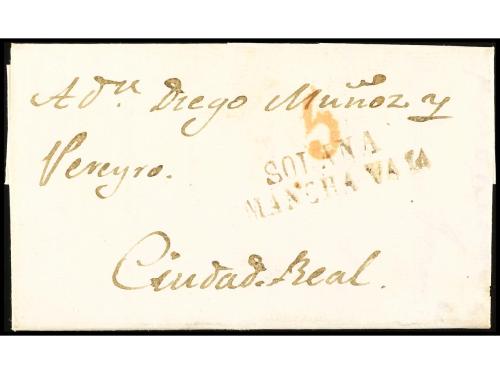 A Dn Diego Muñoz y
Pereyro.
5
SOLANA
MANCHA BAJA
Ciudad-Real.